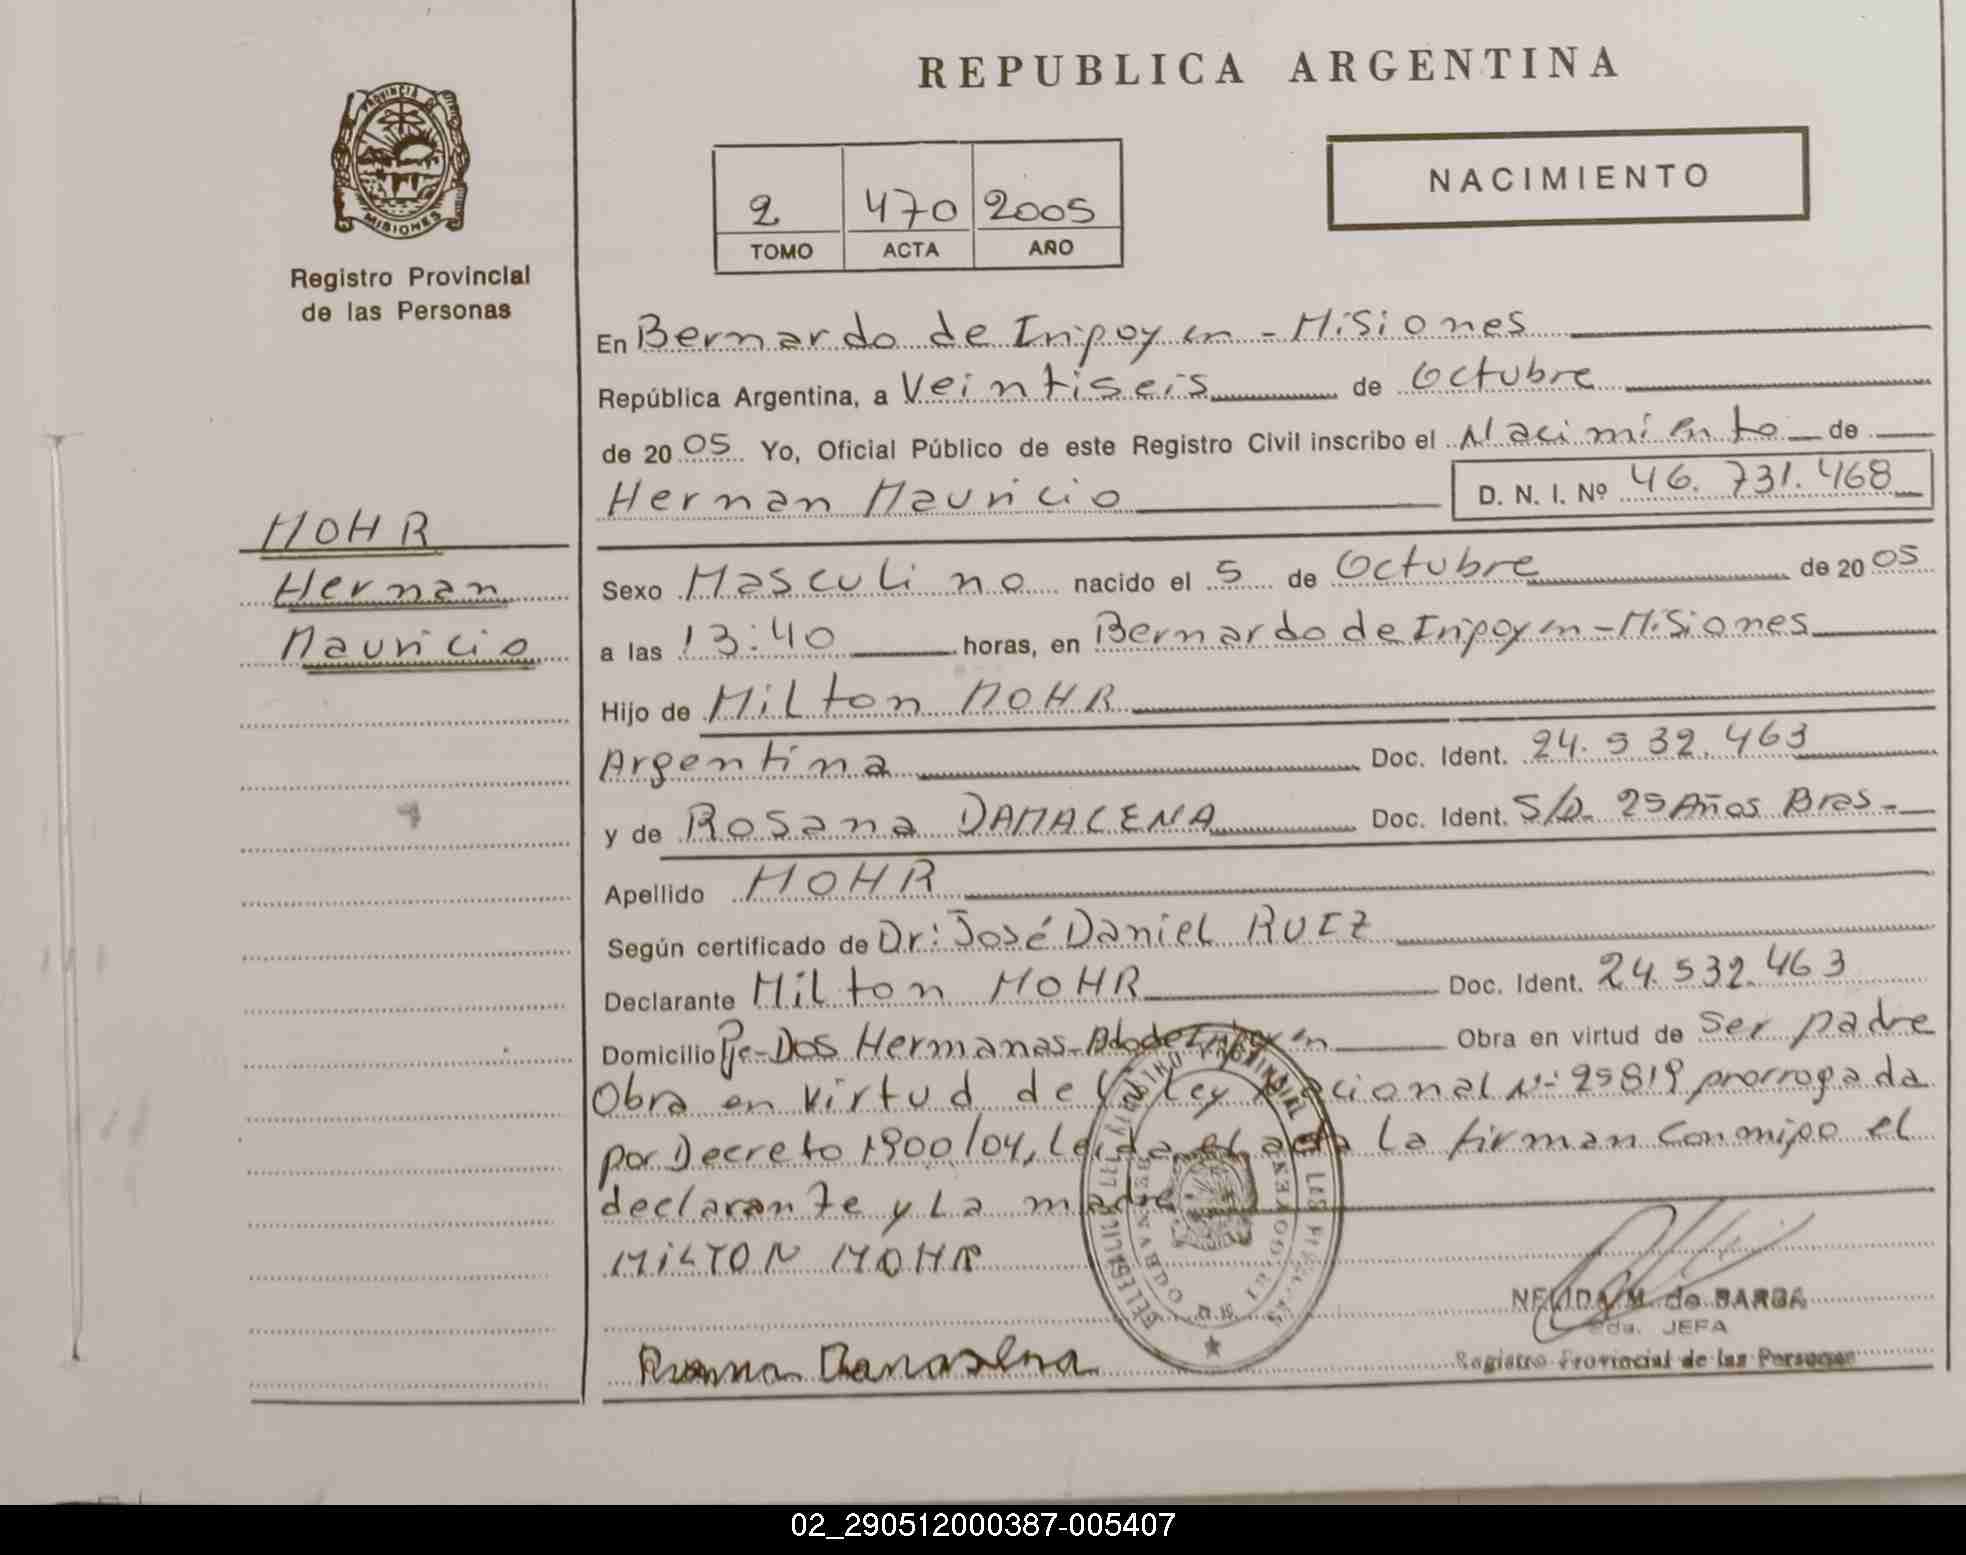 REPUBLICA ARGENTINA
NACIMIENTO
2 470 2005
TOMO ACTA AÑO
PROVINCIA DE
MISIONES
Registro Provincial
de las Personas
MOHR
Hernan
Mauricio
En Bernardo de Irigoyen - Misiones
República Argentina, a Veintiseis de Octubre
de 2005 Yo, Oficial Público de este Registro Civil inscribo el Nacimiento de
Hernan Mauricio D. N. I. Nº 46.731.468
Sexo Masculino nacido el 5 de Octubre de 2005
a las 13:40 horas, en Bernardo de Irigoyen - Misiones
Hijo de Milton MOHR
Argentina Doc. Ident. 24.532.463
y de Rosana DAMACENA Doc. Ident. S/D. 25 Años Bras.-
Apellido MOHR
Según certificado de Dr: José Daniel RUIZ
Declarante Milton MOHR Doc. Ident. 24.532.463
Domicilio Pje-Dos Hermanas- Obra en virtud de Ser padre
Obra en virtud de la Ley Nacional Nº 25819 prorrogada
por Decreto 1900/04, Leida el acta la firman conmigo el
declarante y La madre
MILTON MOHR
NELIDA M. de BARBA
JEFA
Registro Provincial de las Personas
02_290512000387-005407